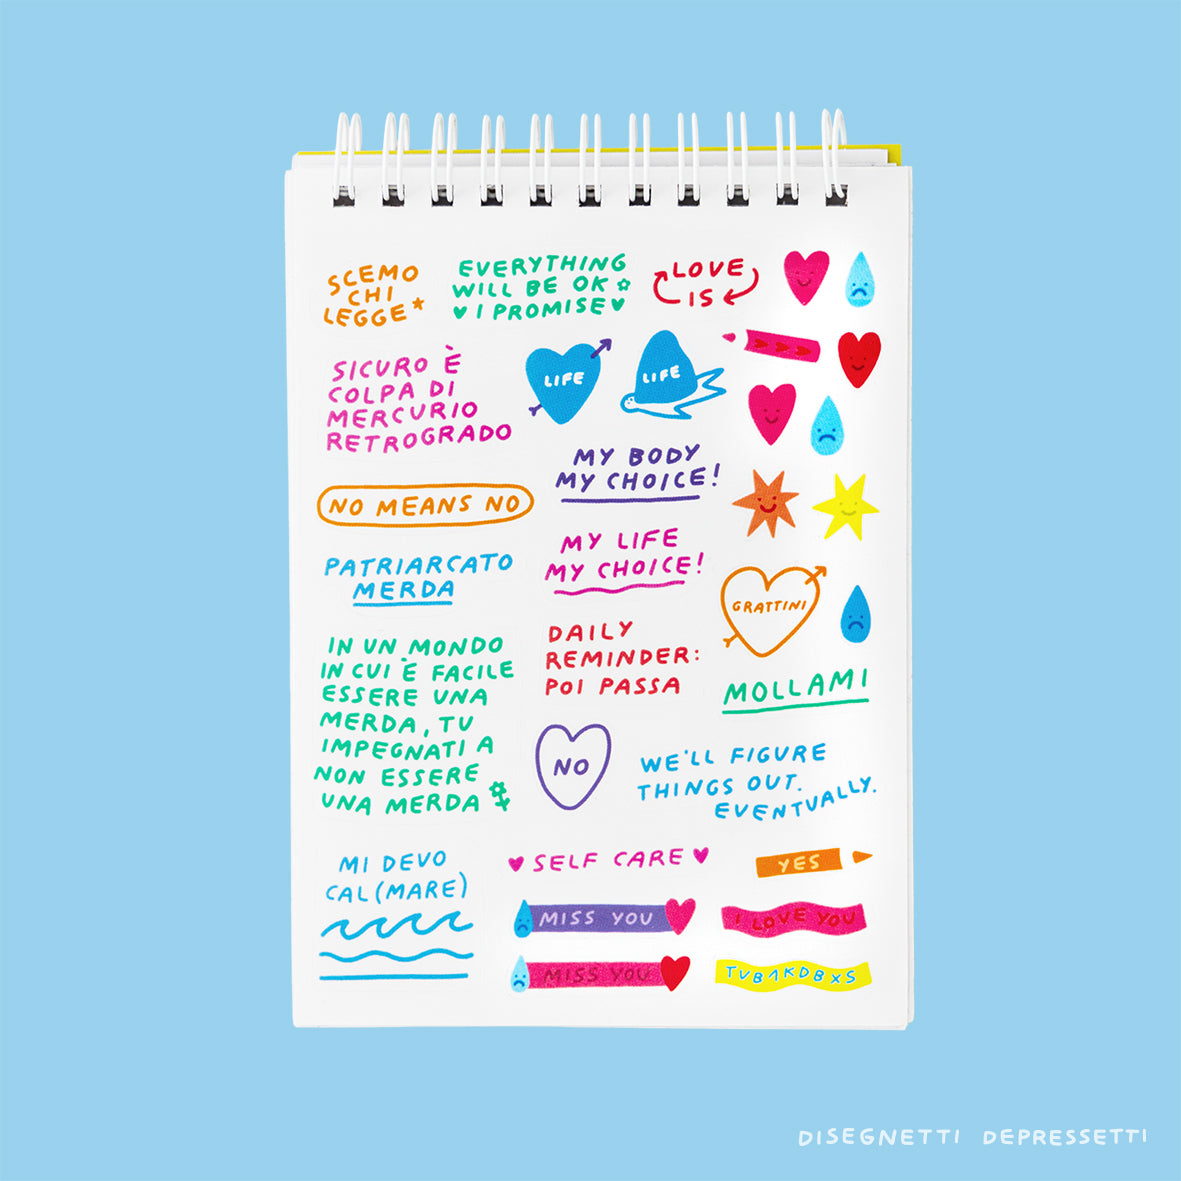 SCEMO
CHI
LEGGE*
EVERYTHING
WILL BE OK
I PROMISE
LOVE
IS
SICURO È
COLPA DI
MERCURIO
RETROGRADO
LIFE
LIFE
MY BODY
MY CHOICE!
NO MEANS NO
MY LIFE
MY CHOICE!
PATRIARCATO
MERDA
GRATTINI
DAILY
REMINDER:
POI PASSA
MOLLAMI
IN UN MONDO
IN CUI È FACILE
ESSERE UNA
MERDA, TU
IMPEGNATI A
NON ESSERE
UNA MERDA
NO
WE'LL FIGURE
THINGS OUT.
EVENTUALLY.
MI DEVO
CAL(MARE)
SELF CARE
YES
MISS YOU
I LOVE YOU
MISS YOU
TVB1KDBXS
DISEGNETTI DEPRESSETTI